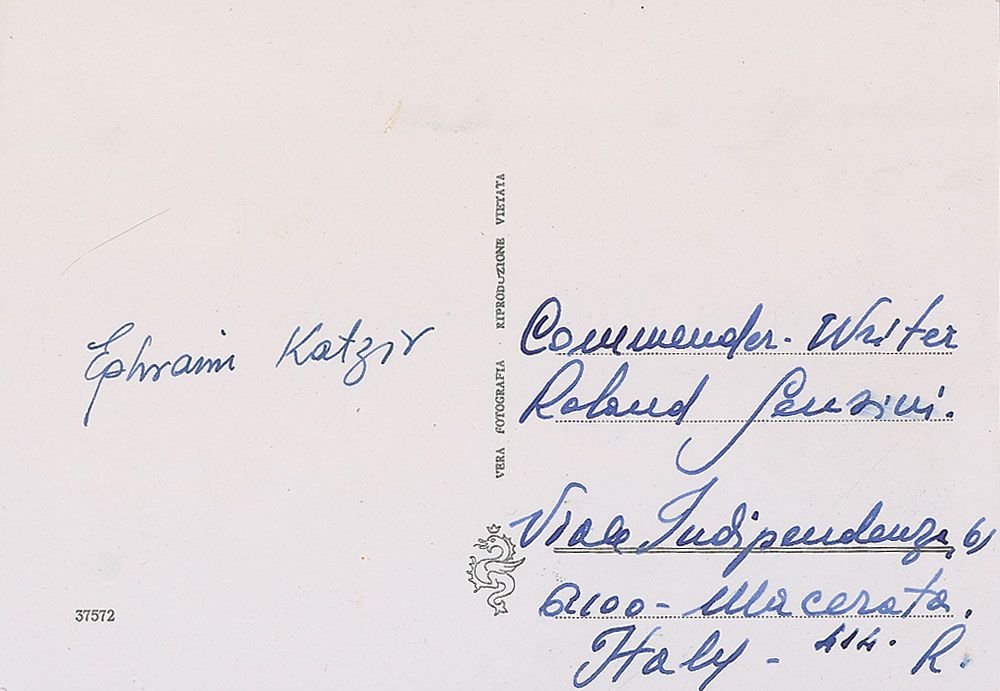 Ephraim Katzir
37572
VERA FOTOGRAFIA - RIPRODUZIONE VIETATA
Commender. Writer
Roland Gensini.
Viale Indipendenza, 61
62100 - Macerata.
Italy - 414. R.